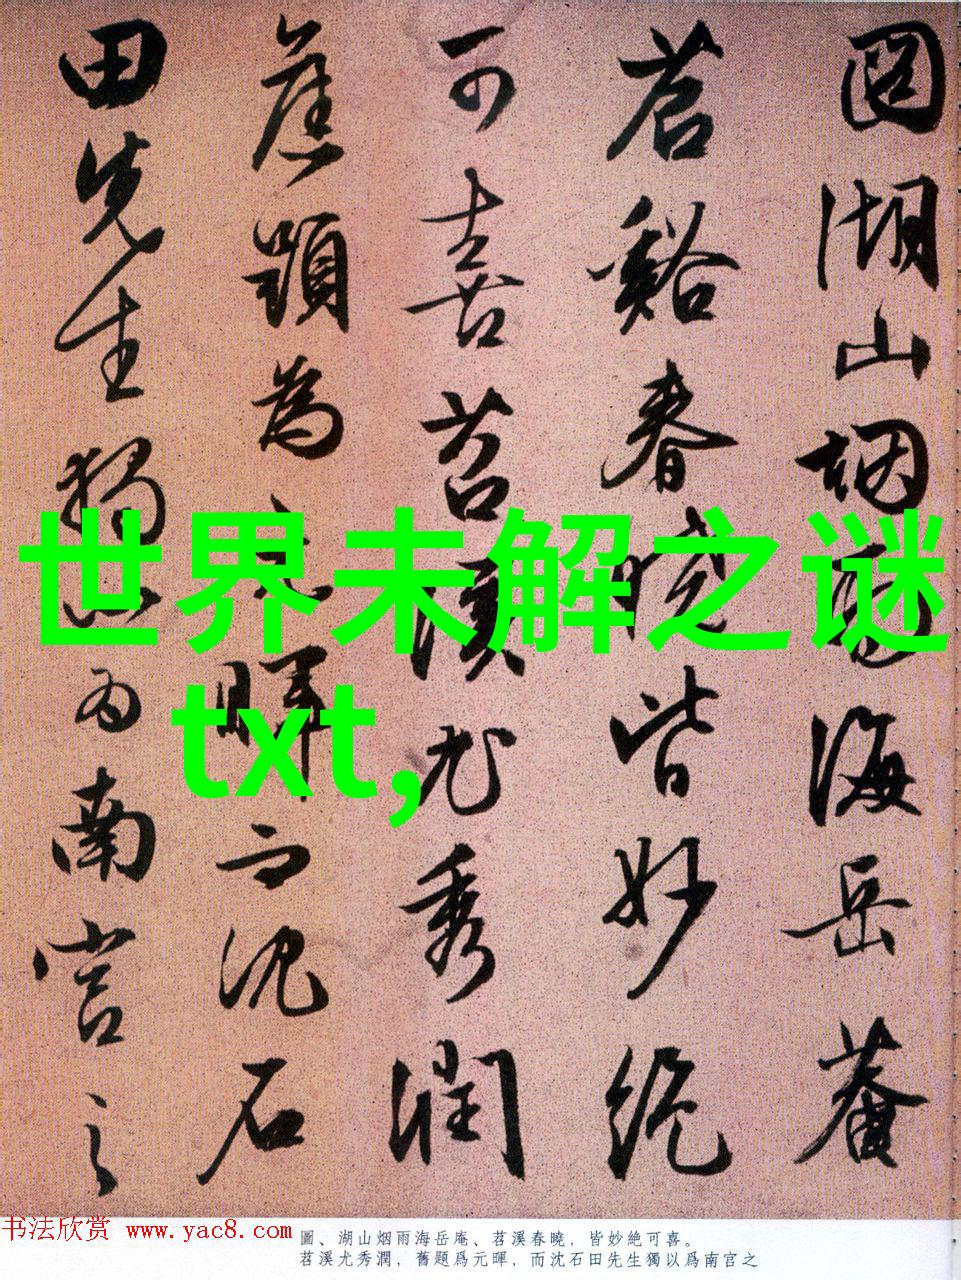 圖湖山烟雨海岳菴
苕谿春曉皆妙絶
可喜苕溪尤秀潤
舊題爲元暉而沈石
田先生獨以爲南宫之
世界未解之谜
txt,
书法欣赏 www.yac8.com
圖、湖山烟雨海岳庵、苕溪春曉，皆妙絶可喜。
苕溪尤秀潤，舊題爲元暉，而沈石田先生獨以爲南宫之